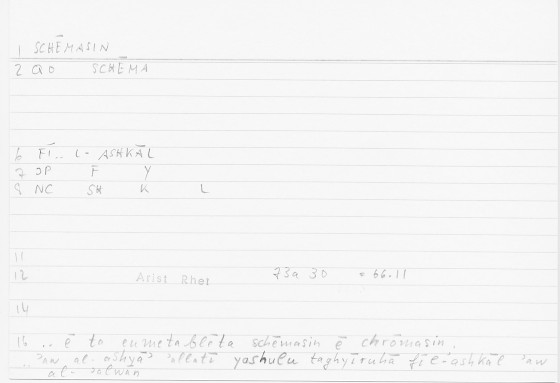 1 SCHĒMASIN
2 QO SCHĒMA
6 FĪ.. L- ASHKĀL
7 JP F Y
9 NC SH K L
11
12 Arist Rhet 73a 30 = 66.11
14
16 .. ē to eumetablēta schēmasin ē chrōmasin.
.. ʾaw al-ashyāʾ ʾallatī yashulu taghyīruhā fī l-ʾashkāl ʾaw
al-ʾalwān